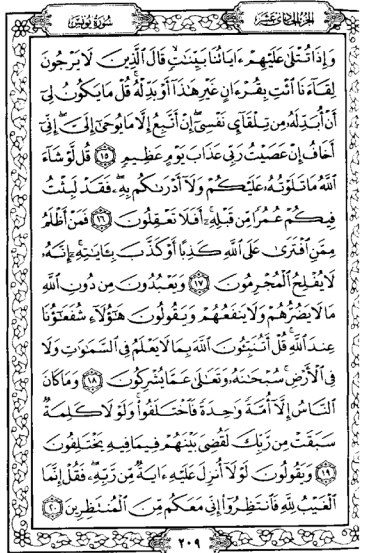 الجزء الحادي عشر
سورة يونس
وَإِذَا تُتْلَىٰ عَلَيْهِمْ ءَايَاتُنَا بَيِّنَٰتٍ قَالَ ٱلَّذِينَ لَا يَرْجُونَ
لِقَآءَنَا ٱئْتِ بِقُرْءَانٍ غَيْرِ هَٰذَآ أَوْ بَدِّلْهُ قُلْ مَا يَكُونُ لِىٓ
أَنْ أُبَدِّلَهُۥ مِن تِلْقَآىِٕ نَفْسِىٓ إِنْ أَتَّبِعُ إِلَّا مَا يُوحَىٰٓ إِلَىَّ إِنِّىٓ
أَخَافُ إِنْ عَصَيْتُ رَبِّى عَذَابَ يَوْمٍ عَظِيمٍ ١٥ قُل لَّوْ شَآءَ
ٱللَّهُ مَا تَلَوْتُهُۥ عَلَيْكُمْ وَلَآ أَدْرَىٰكُم بِهِۦ فَقَدْ لَبِثْتُ
فِيكُمْ عُمُرًا مِّن قَبْلِهِۦٓ أَفَلَا تَعْقِلُونَ ١٦ فَمَنْ أَظْلَمُ
مِمَّنِ ٱفْتَرَىٰ عَلَى ٱللَّهِ كَذِبًا أَوْ كَذَّبَ بِـَٔايَٰتِهِۦٓ إِنَّهُۥ
لَا يُفْلِحُ ٱلْمُجْرِمُونَ ١٧ وَيَعْبُدُونَ مِن دُونِ ٱللَّهِ
مَا لَا يَضُرُّهُمْ وَلَا يَنفَعُهُمْ وَيَقُولُونَ هَٰٓؤُلَآءِ شُفَعَٰٓؤُنَا
عِندَ ٱللَّهِ قُلْ أَتُنَبِّـُٔونَ ٱللَّهَ بِمَا لَا يَعْلَمُ فِى ٱلسَّمَٰوَٰتِ وَلَا
فِى ٱلْأَرْضِ سُبْحَٰنَهُۥ وَتَعَٰلَىٰ عَمَّا يُشْرِكُونَ ١٨ وَمَا كَانَ
ٱلنَّاسُ إِلَّآ أُمَّةً وَٰحِدَةً فَٱخْتَلَفُوا۟ وَلَوْلَا كَلِمَةٌ
سَبَقَتْ مِن رَّبِّكَ لَقُضِىَ بَيْنَهُمْ فِيمَا فِيهِ يَخْتَلِفُونَ
١٩ وَيَقُولُونَ لَوْلَآ أُنزِلَ عَلَيْهِ ءَايَةٌ مِّن رَّبِّهِۦ فَقُلْ إِنَّمَا
ٱلْغَيْبُ لِلَّهِ فَٱنتَظِرُوٓا۟ إِنِّى مَعَكُم مِّنَ ٱلْمُنتَظِرِينَ ٢٠
٢٠٩